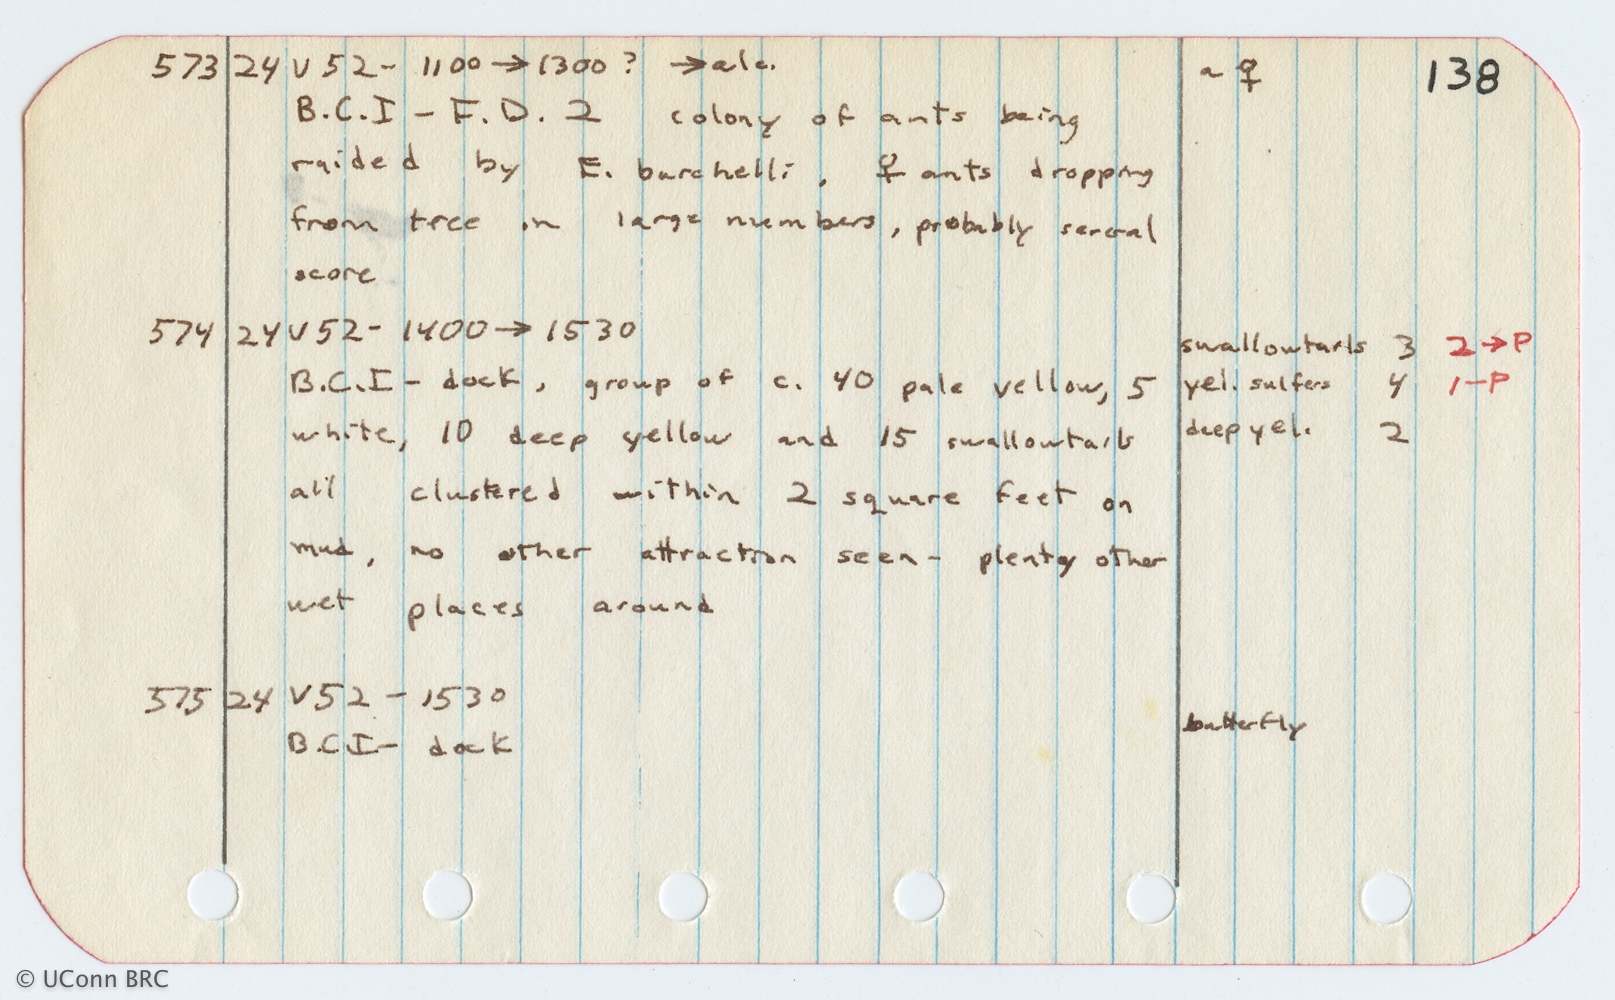 138
573 24 V 52 - 1100 → 1300 ? → alc. a ♀
B.C.I - F.D. 2 colony of ants being
raided by E. burchelli, ♀ ants dropping
from tree in large numbers, probably several
score
574 24 V 52 - 1400 → 1530
swallowtails 3 2→P
B.C.I - dock, group of c. 40 pale yellow, 5
yel. sulfers 4 1-P
white, 10 deep yellow and 15 swallowtails
deep yel. 2
all clustered within 2 square feet on
mud, no other attraction seen - plenty other
wet places around
575 24 V 52 - 1530
butterfly
B.C.I - dock
© UConn BRC